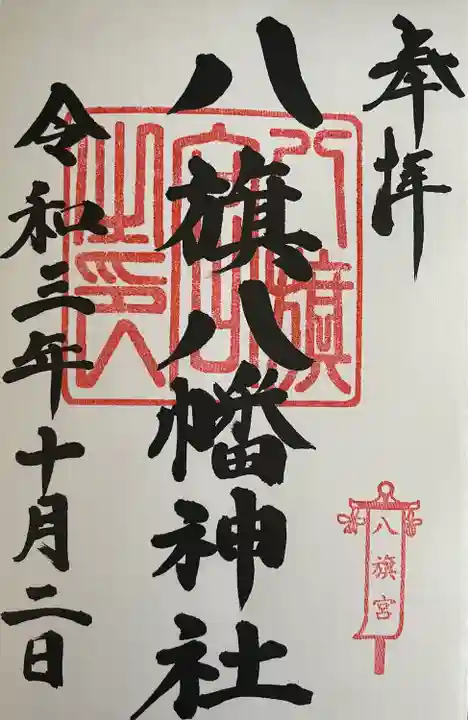 奉拝
八旗八幡神社
八旗宮之印
令和三年十月二日
八旗宮